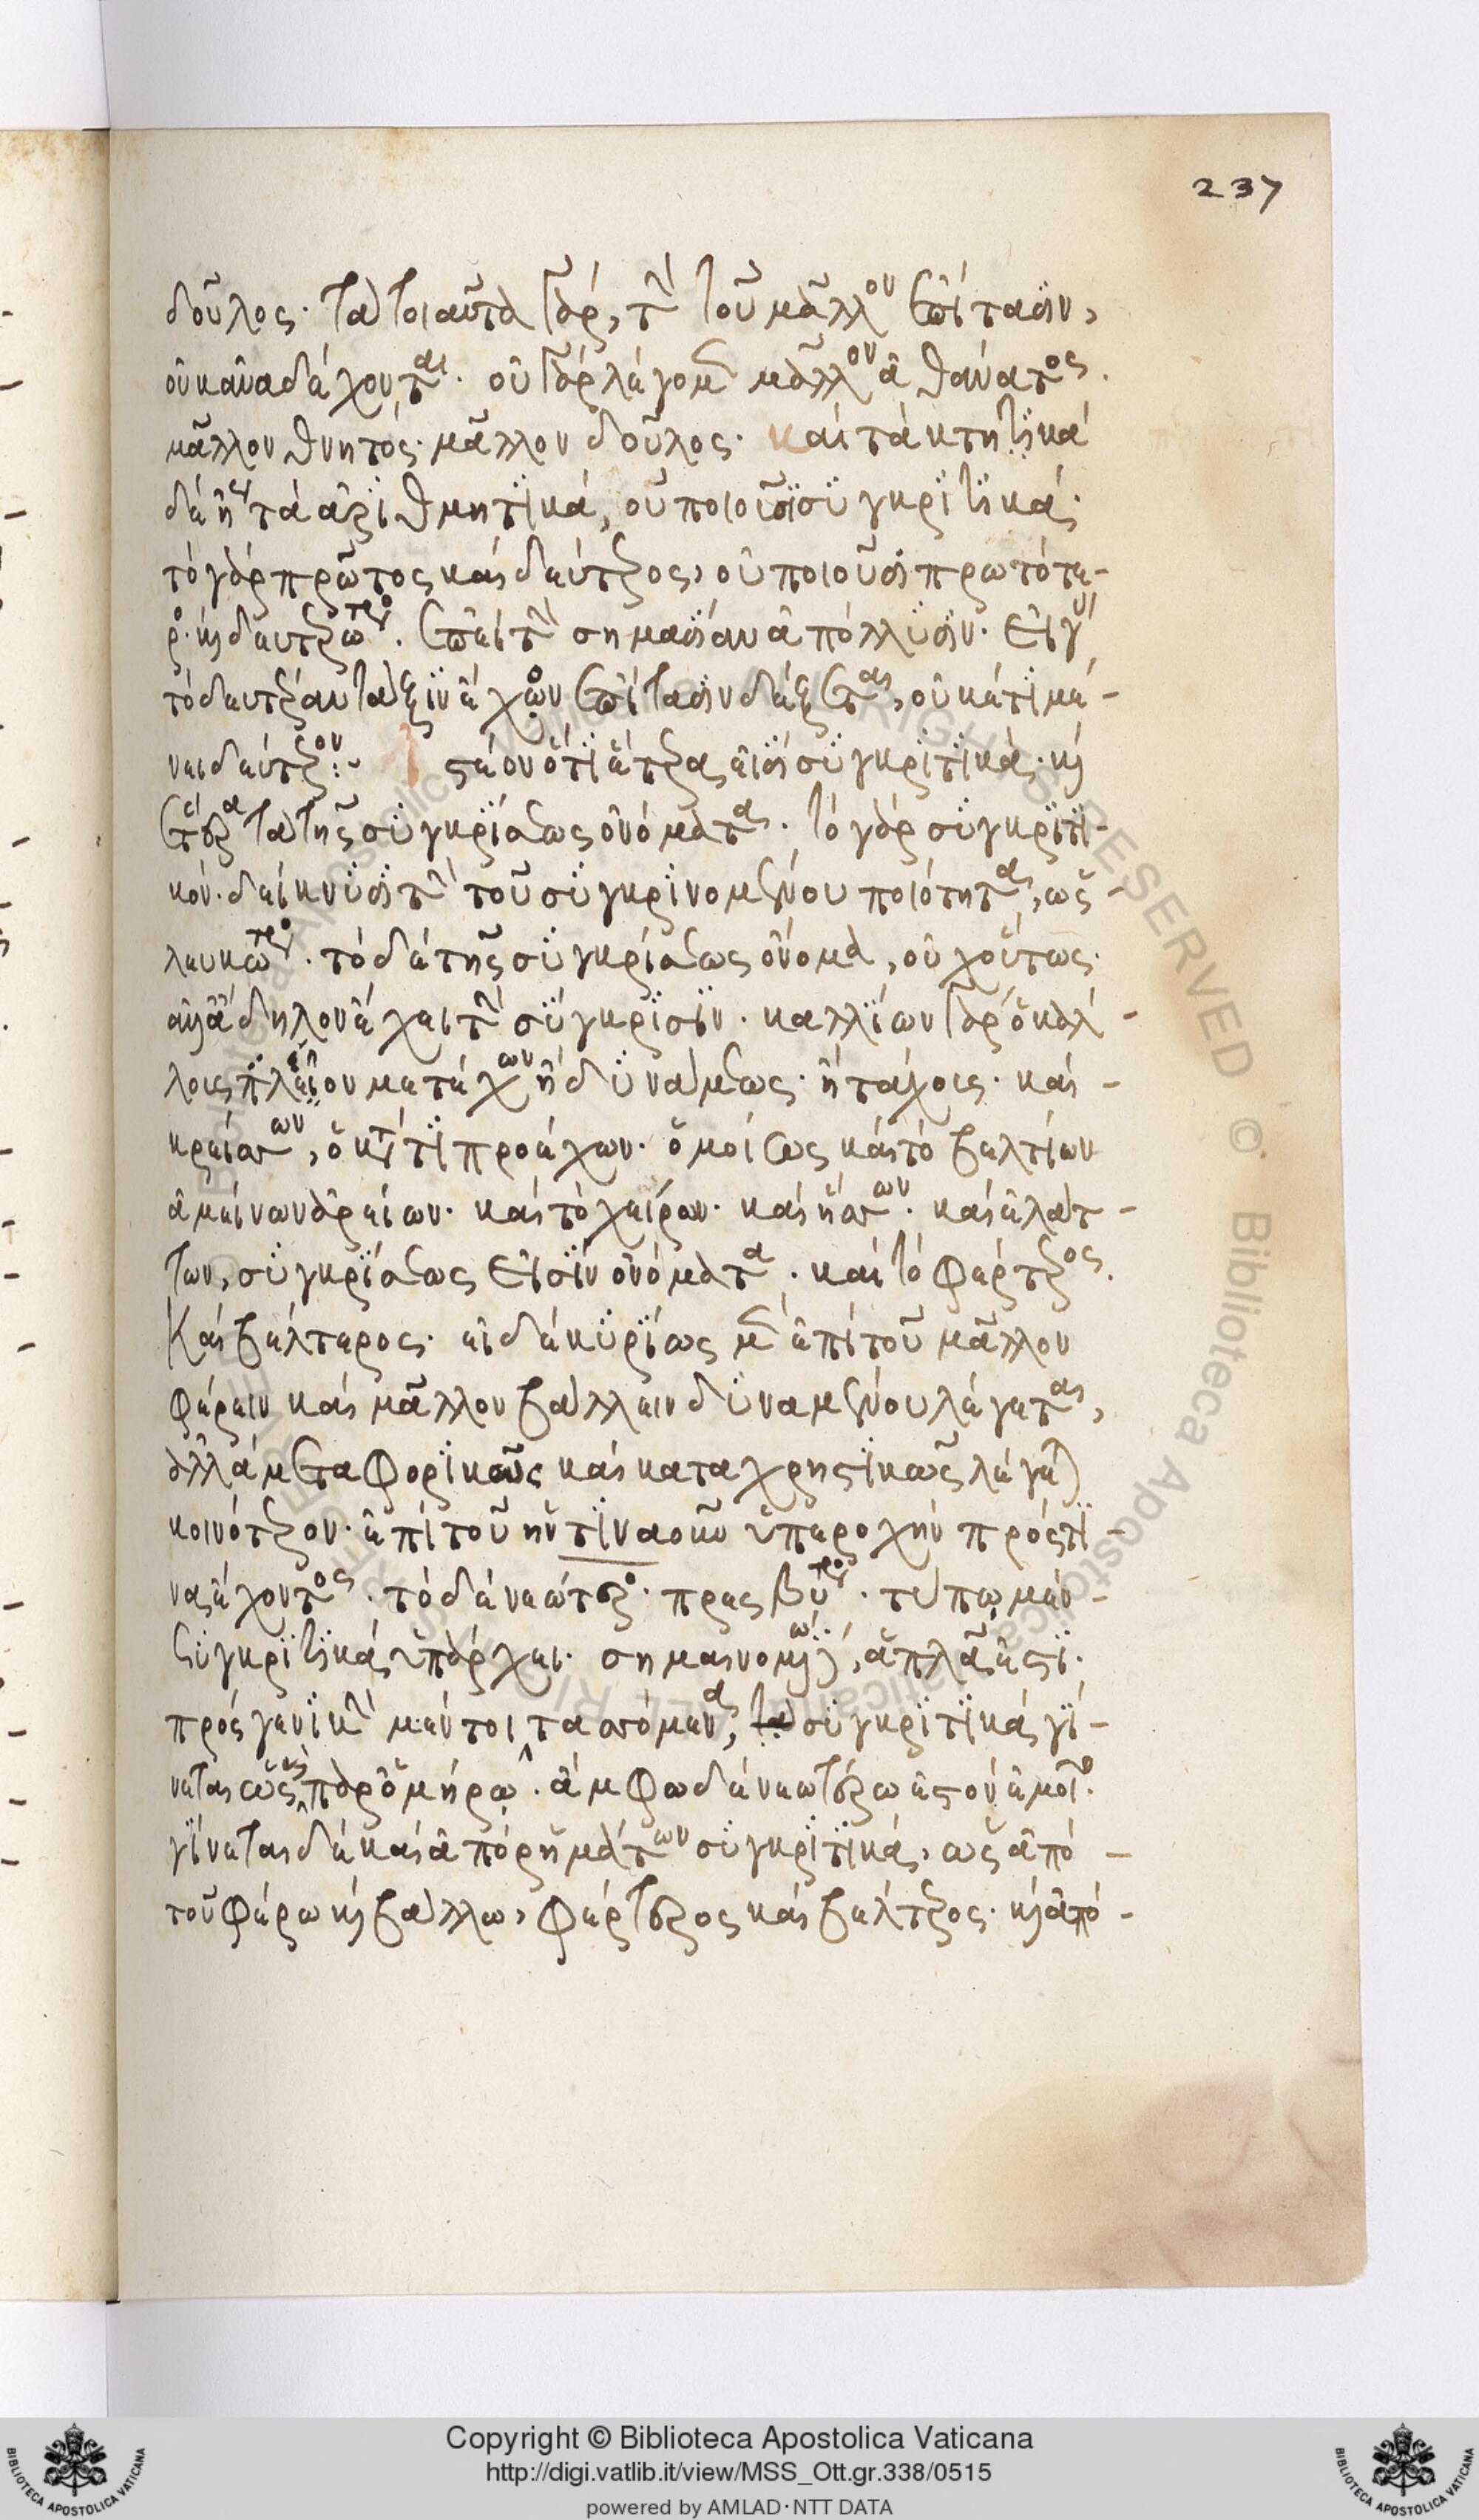 237
δοῦλος· τὰ τοιαῦτα γὰρ, τὴν τοῦ μᾶλλον ἐπίτασιν,
οὐκ ἀναδέχονται· οὐ γὰρ λέγομεν μᾶλλον ἀθάνατος·
μᾶλλον θνητός· μᾶλλον δοῦλος· καὶ τὰ κτητικὰ
δὲ ἢ τὰ ἀριθμητικά, οὐ ποιοῦσι συγκριτικά·
τὸ γὰρ πρῶτος καὶ δεύτερος, οὐ ποιοῦσι πρωτότε-
ρο· καὶ δευτερώτερο· ἐπεὶ τὴν σημασίαν ἀπόλλυσιν· εἰ γὰρ
τὸ δευτέραν τάξιν ἔχον ἐπίτασιν δέξεται, οὐκέτι μέ-
νει δεύτερον:-
στέον ὅτι ἕτερα εἰσὶ συγκριτικά· καὶ
ἕτερα τὰ τῆς συγκρίσεως ὀνόματα· τὸ γὰρ συγκριτι-
κόν· δείκνυσι τὴν τοῦ συγκρινομένου ποιότητα, ὡς
λευκώτερο· τὸ δὲ τῆς συγκρίσεως ὄνομα, οὐχ οὕτως·
ἀλλ' ἄδηλον ἔχει τὴν σύγκρισιν· καλλίων γὰρ ὁ κάλ-
λοις πλεῖον μετέχων ἢ δυνάμεως· ἢ τάχοις· καὶ
κρείσσων, ὁ κατά τι προέχων· ὁμοίως καὶ τὸ βελτίων
ἀμείνων ἀρείων· καὶ τὸ χείρων· καὶ ἥσσων· καὶ ἐλάτ-
των, συγκρίσεως εἰσὶν ὀνόματα· καὶ τὸ φέρτερος·
Καὶ βέλτερος· εἰ δὲ κυρίως μὲν ἐπὶ τοῦ μᾶλλον
φέρειν καὶ μᾶλλον βάλλειν δυναμένου λέγεται,
ἀλλὰ μεταφορικῶς καὶ καταχρηστικῶς λέγεται
κοινότερον· ἐπὶ τοῦ ἥντινα οὖν ὑπεροχὴν πρός τι-
νας ἔχοντος· τὸ δὲ νεώτερο· πρεσβύτερο· τύπῳ μὲν
συγκριτικὰ ὑπάρχει· σημαινομένῳ, ἁπλᾶ ἐστι·
πρὸς γενικὴν μέντοι τασσόμενα, συγκριτικὰ γί-
νεται ὡς παρ' ὁμήρῳ· ἄμφω δὲ νεωτέρω ἐστὸν ἐμοῖο·
γίνεται δὲ καὶ ἀπὸ ῥημάτων συγκριτικά, ὡς ἀπὸ
τοῦ φέρω καὶ βάλλω, φέρτερος καὶ βέλτερος· καὶ ἀπὸ
Copyright © Biblioteca Apostolica Vaticana
http://digi.vatlib.it/view/MSS_Ott.gr.338/0515
powered by AMLAD·NTT DATA